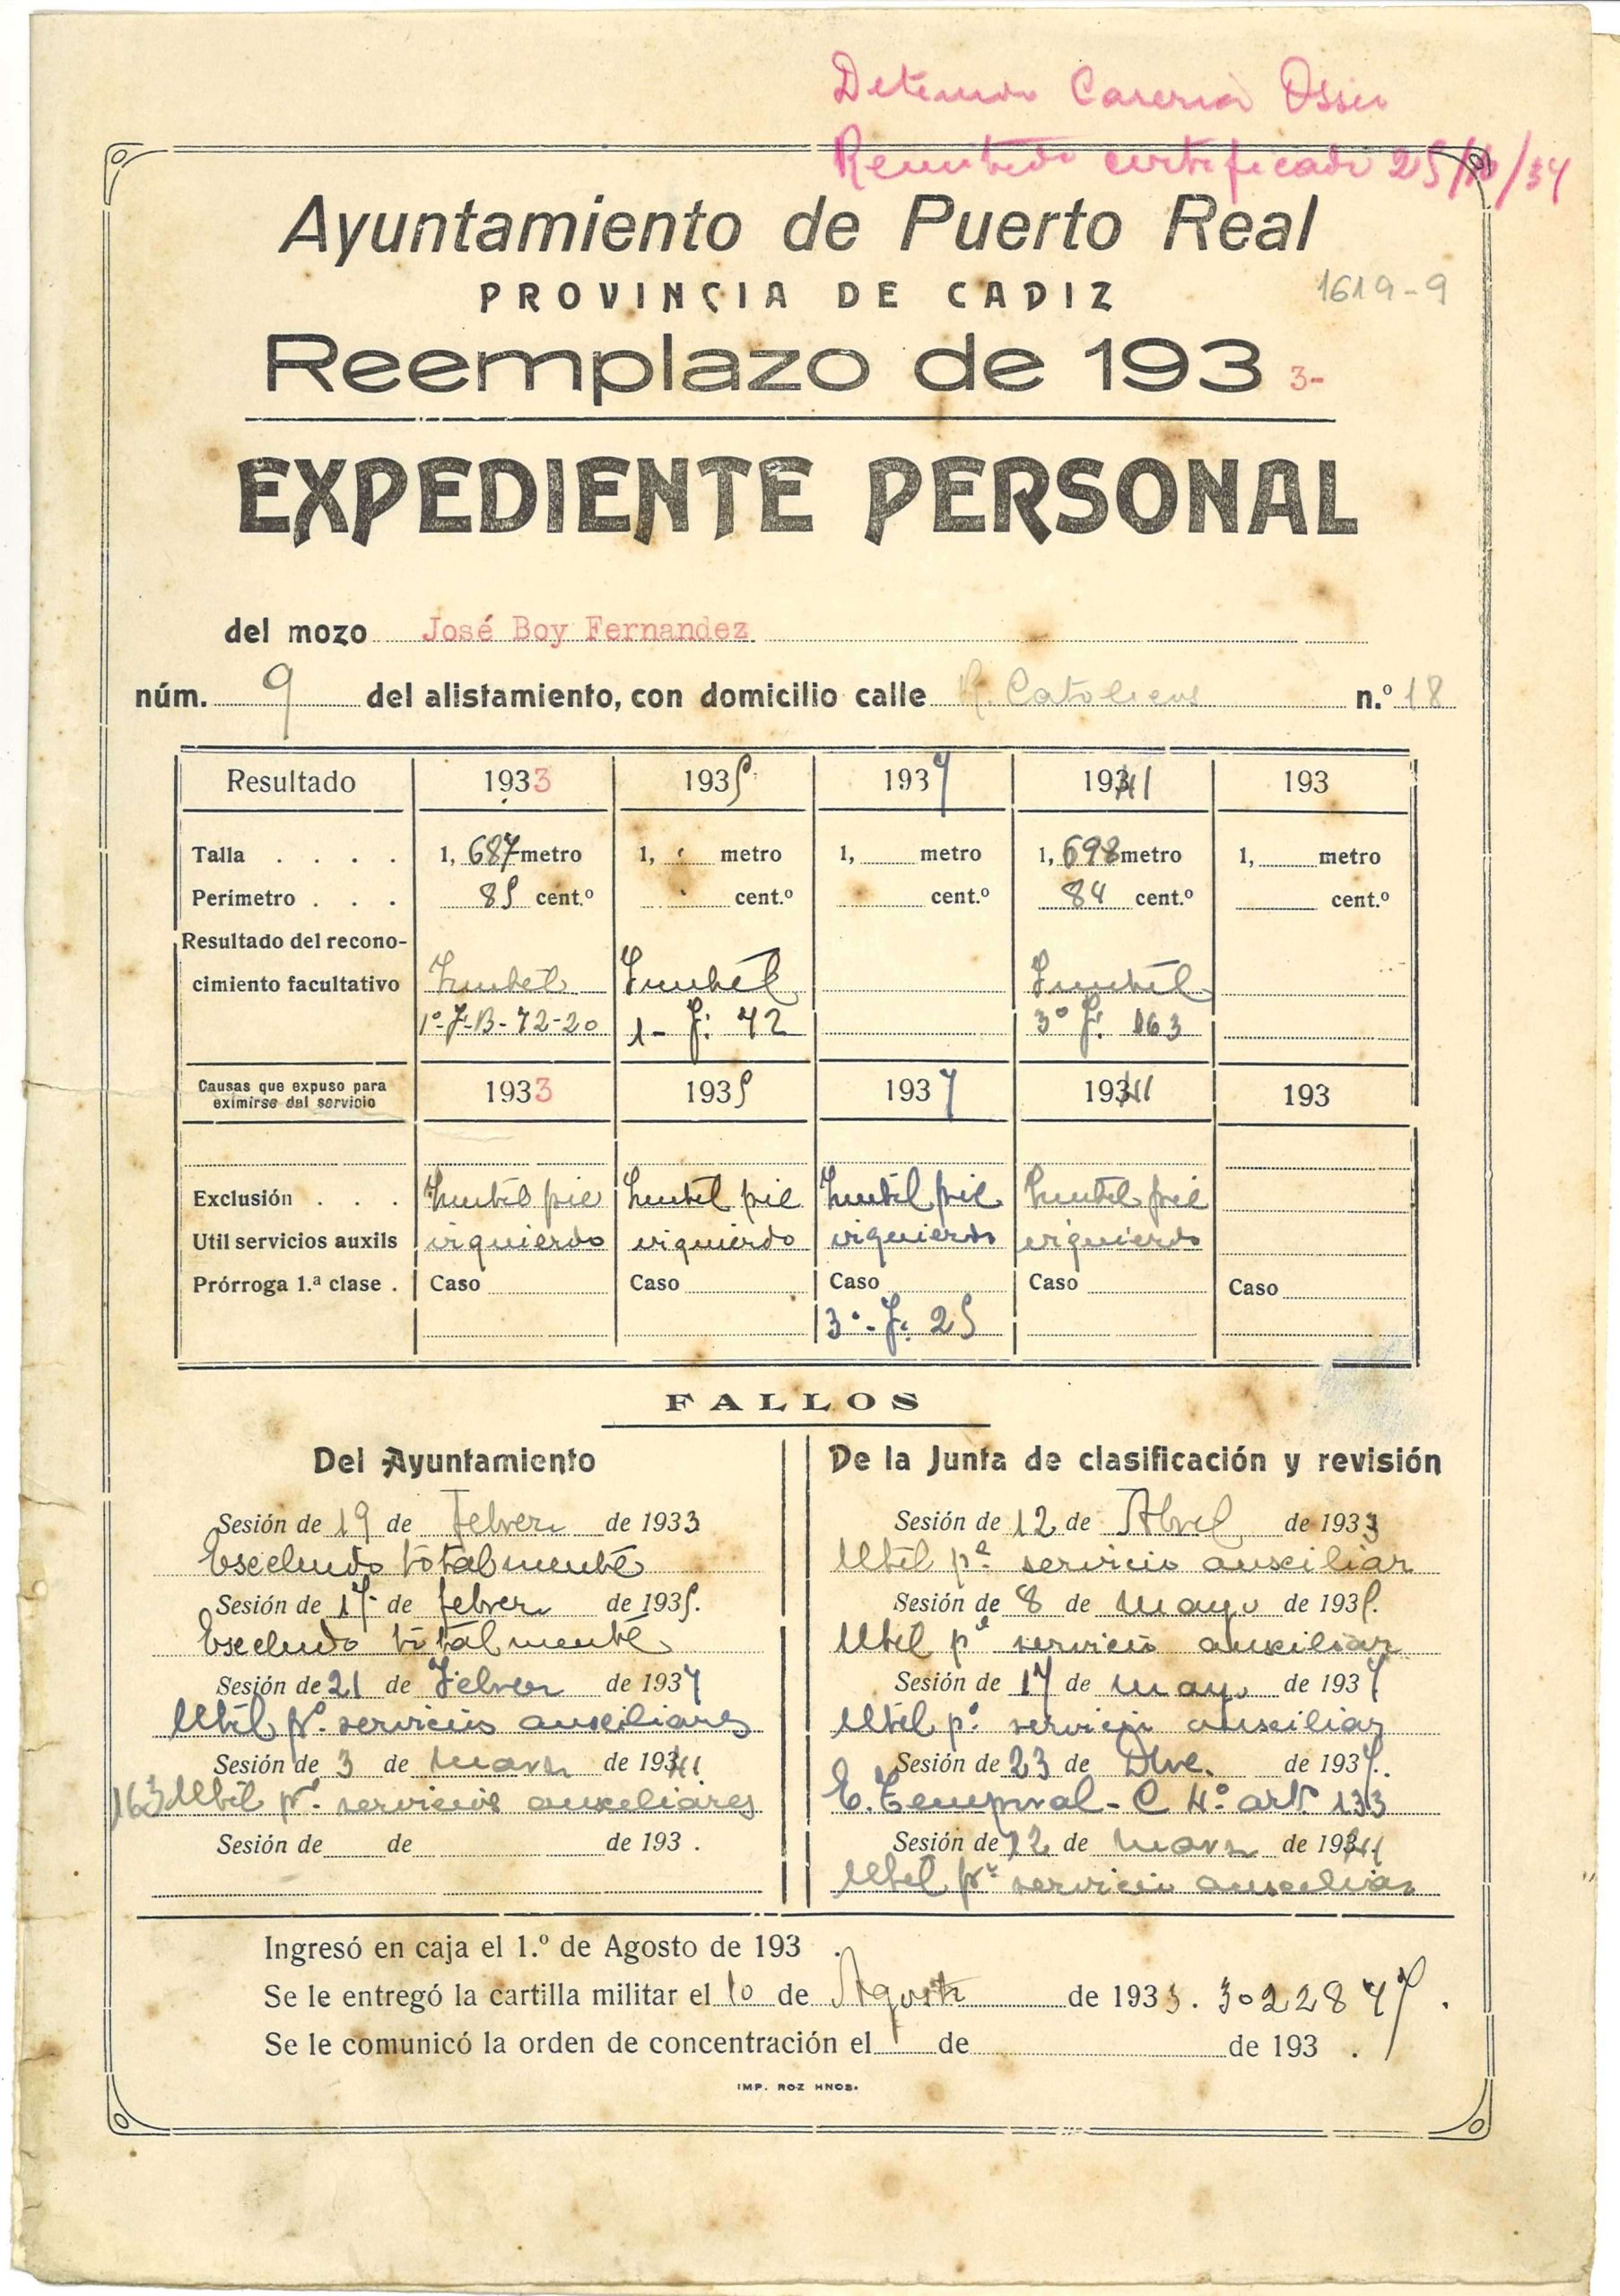 Detenido Caseria Ossio
Remitido certificado 25/10/37
Ayuntamiento de Puerto Real
PROVINCIA DE CADIZ
1619-9
Reemplazo de 193 3-
EXPEDIENTE PERSONAL
del mozo José Boy Fernandez
núm. 9 del alistamiento, con domicilio calle R. Catolicos n.º 18
Resultado 1933 1935 1937 1941 193
Talla . . . . 1, 687 metro 1, metro 1, metro 1, 698 metro 1, metro
Perimetro . . . 85 cent.º cent.º cent.º 84 cent.º cent.º
Resultado del recono-
cimiento facultativo Inutil Inutil Inutil
1º-J-B-72-20 1- J. 72 3º J. 163
Causas que expuso para
eximirse del servicio 1933 1935 1937 1941 193
Exclusión . . . Inutil pie Inutil pie Inutil pie Inutil pie
Util servicios auxils izquierdo izquierdo izquierdo izquierdo
Prórroga 1.ª clase . Caso Caso Caso Caso Caso
3º-J. 25
FALLOS
Del Ayuntamiento
Sesión de 19 de Febrero de 1933
Escluido totalmente
Sesión de 17 de febrero de 1935.
Escluido totalmente
Sesión de 21 de Febrero de 1937
Util pª. servicios auxiliares
Sesión de 3 de Marzo de 1941.
163 Util pª. servicios auxiliares
Sesión de de de 193 .
De la Junta de clasificación y revisión
Sesión de 12 de Abril de 1933
Util pª servicio auxiliar
Sesión de 8 de Mayo de 1935.
Util pª servicio auxiliar
Sesión de 17 de Mayo de 1937
Util pª. servicio auxiliar
Sesión de 23 de Dbre. de 1937.
E. Temporal - C 4º art. 133
Sesión de 12 de Marzo de 1941
Util pª servicio auxiliar
Ingresó en caja el 1.º de Agosto de 193 .
Se le entregó la cartilla militar el 10 de Agosto de 1933. 3022877 .
Se le comunicó la orden de concentración el de de 193 .
IMP. ROZ HNOS.